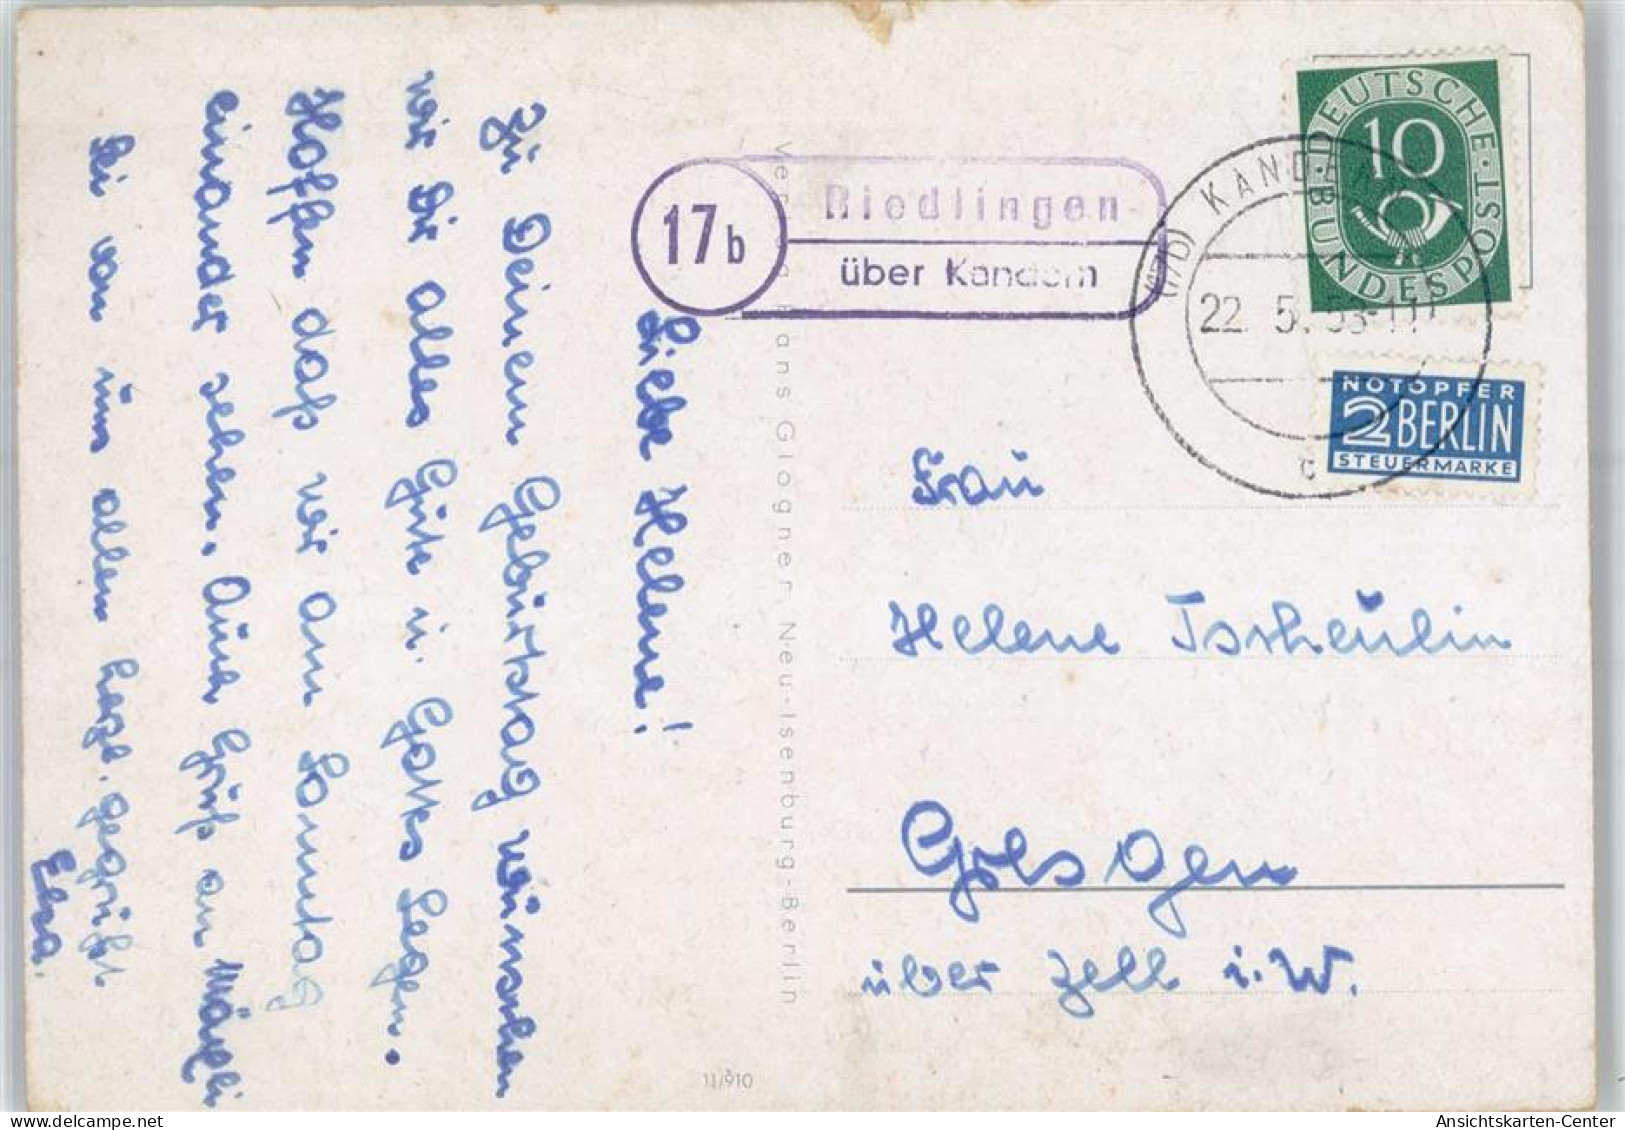 Liebe Helene!
Zu Deinem Geburtstag wünschen
wir Dir alles Gute u. Gottes Segen.
Hoffen daß wir am Sonntag
einander sehen. Auch Gruß an
Sei von uns allen herzl. gegrüßt
Elsa.
Verlag Hans Glogner Neu-Isenburg-Berlin
11/910
17b
Riedlingen
über Kandern
(17b) KANDERN
22. 5. 53-11
c
DEUTSCHE · BUNDESPOST
10
NOTOPFER
2 BERLIN
STEUERMARKE
Frau
Helene Tscheulin
Gresgen
über Zell i. W.
Ansichtskarten-Center